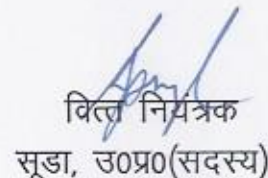 वित्त नियंत्रक
सूडा, उ0प्र0(सदस्य)